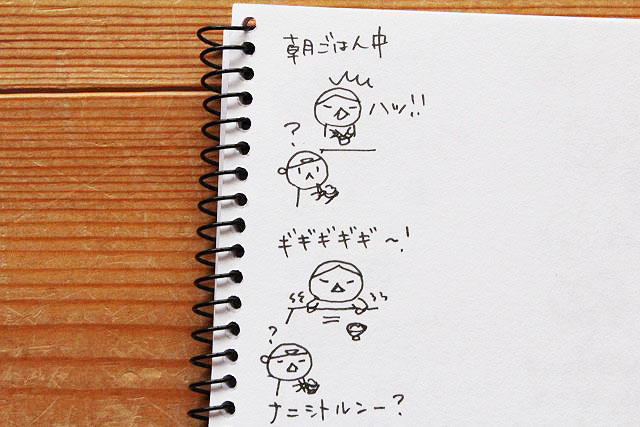 朝ごはん中
ハッ!!
?
ギギギギギ〜!
?
ナニシトルンー?